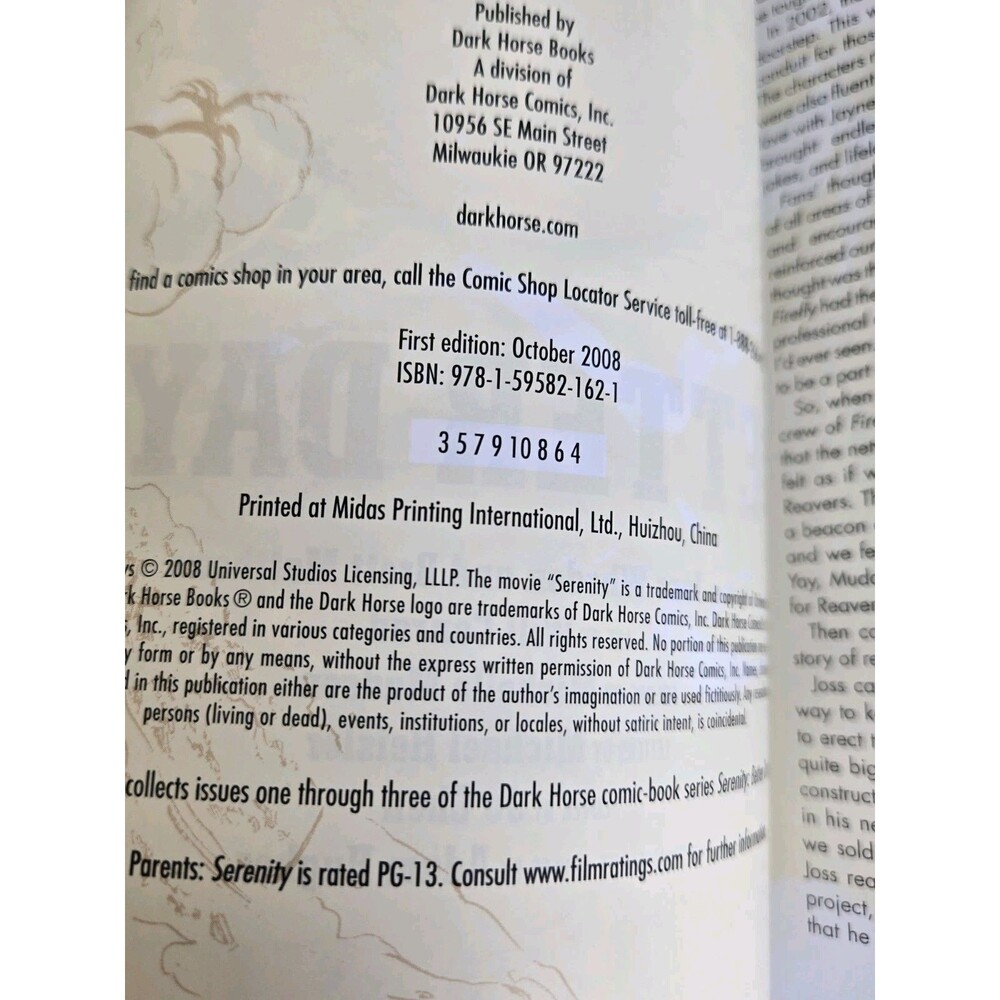 Published by
Dark Horse Books
A division of
Dark Horse Comics, Inc.
10956 SE Main Street
Milwaukie OR 97222
darkhorse.com
find a comics shop in your area, call the Comic Shop Locator Service toll-free at 1-888-
First edition: October 2008
ISBN: 978-1-59582-162-1
3 5 7 9 10 8 6 4
Printed at Midas Printing International, Ltd., Huizhou, China
© 2008 Universal Studios Licensing, LLLP. The movie “Serenity” is a trademark and copyright
Horse Books® and the Dark Horse logo are trademarks of Dark Horse Comics, Inc. Dark Horse
, Inc., registered in various categories and countries. All rights reserved. No portion of this publication
form or by any means, without the express written permission of Dark Horse Comics, Inc. Names,
in this publication either are the product of the author's imagination or are used fictitiously. Any
persons (living or dead), events, institutions, or locales, without satiric intent, is coincidental.
collects issues one through three of the Dark Horse comic-book series Serenity:
Parents: Serenity is rated PG-13. Consult www.filmratings.com for further information.
In 2002,
doorstep. This
conduit for
The characters
were also fluent
love with Jayne
brought
jokes, and
Fans'
of all areas of
and
reinforced our
thought was
Firefly had the
professional
I'd ever seen.
to be a part
So, when
crew of
that the
felt as if
Reavers.
a beacon
and we
Yay,
for
Then
story of
Joss
way to
to erect
quite big
construct
in his
we sold
Joss
project,
that he